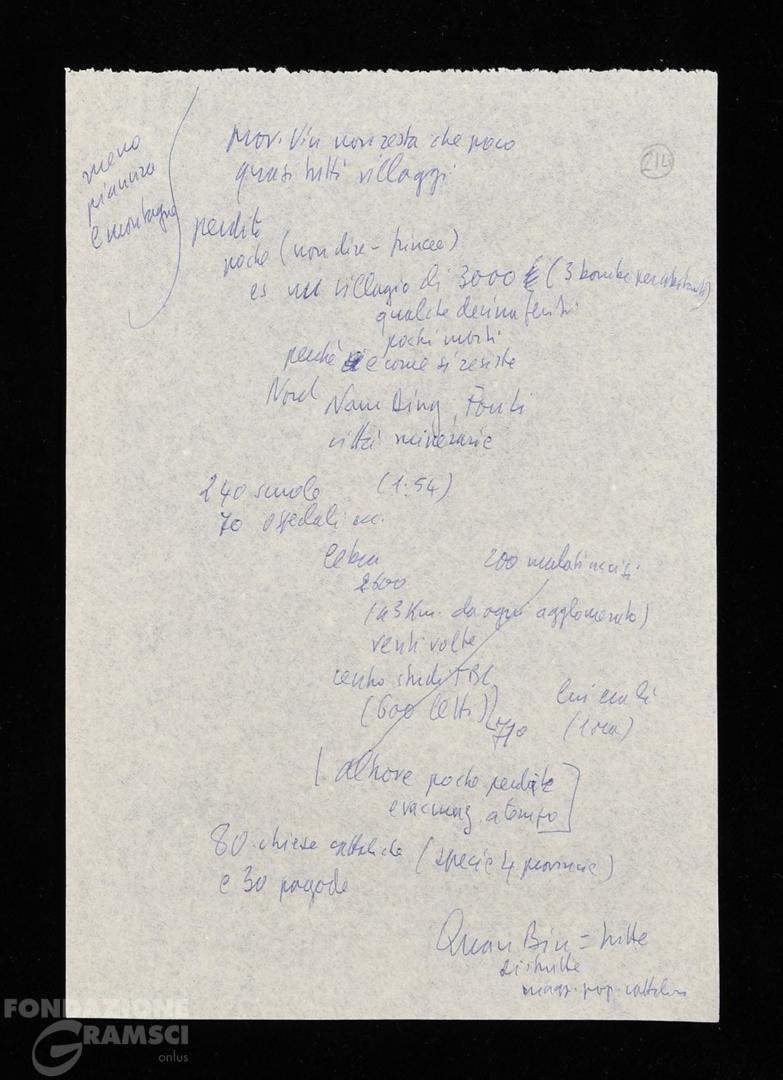 prov. Vin non resta che poco
quasi tutti villaggi
214
meno
pianura
e montagna
perdite
poche (non dire - trincee)
es un villagio di 3000 (3 bombe per
qualche decina feriti
pochi morti
perché e come si resiste
Nord Nam Ding, Fonti
città minerarie
240 scuole (1:54)
70 ospedali ecc.
lebra 200 malati
2600
(a 3 Km. da ogni agglomerato)
venti volte
centro studi TBC
(600 letti)
(1 ora)
altrove poche perdite
evacuaz. a tempo
80 chiese cattoliche (specie 4 provincie)
e 30 pagode
Quan Bin = tutte
distrutte
magg. pop. cattolica
FONDAZIONE
GRAMSCI
onlus